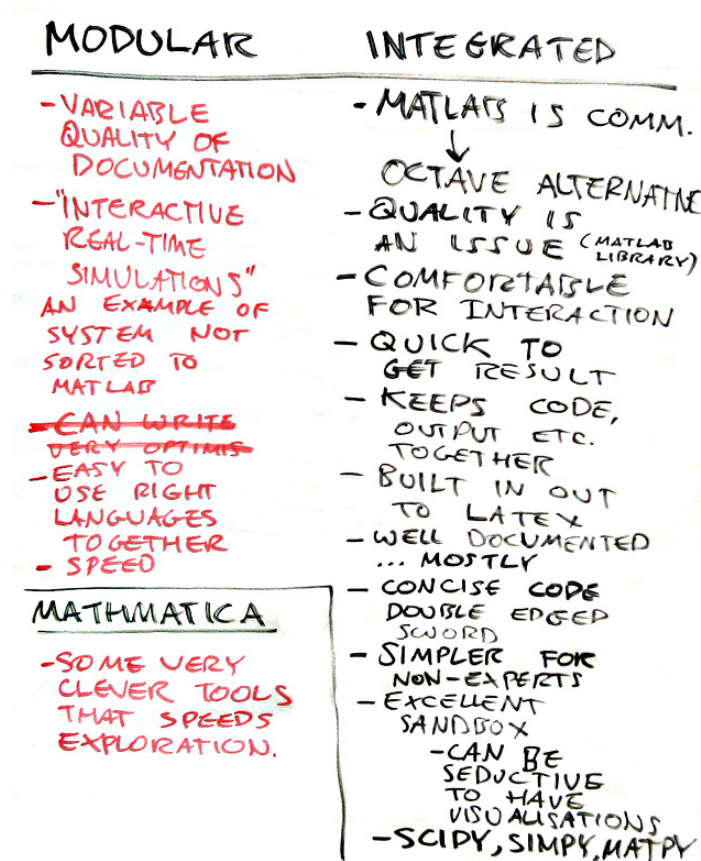 MODULAR
- VARIABLE
QUALITY OF
DOCUMENTATION
- "INTERACTIVE
REAL-TIME
SIMULATIONS"
AN EXAMPLE OF
SYSTEM NOT
SORTED TO
MATLAB
- CAN WRITE
VERY OPTIMIS
- EASY TO
USE RIGHT
LANGUAGES
TOGETHER
- SPEED
MATHMATICA
- SOME VERY
CLEVER TOOLS
THAT SPEEDS
EXPLORATION.
INTEGRATED
- MATLAB IS COMM.
↓
OCTAVE ALTERNATIVE
- QUALITY IS
AN ISSUE (MATLAB
LIBRARY)
- COMFORTABLE
FOR INTERACTION
- QUICK TO
GET RESULT
- KEEPS CODE,
OUTPUT ETC.
TOGETHER
- BUILT IN OUT
TO LATEX
- WELL DOCUMENTED
... MOSTLY
- CONCISE CODE
DOUBLE EDGED
SWORD
- SIMPLER FOR
NON-EXPERTS
- EXCELLENT
SANDBOX
- CAN BE
SEDUCTIVE
TO HAVE
VISUALISATIONS
- SCIPY, SIMPY, MATPY